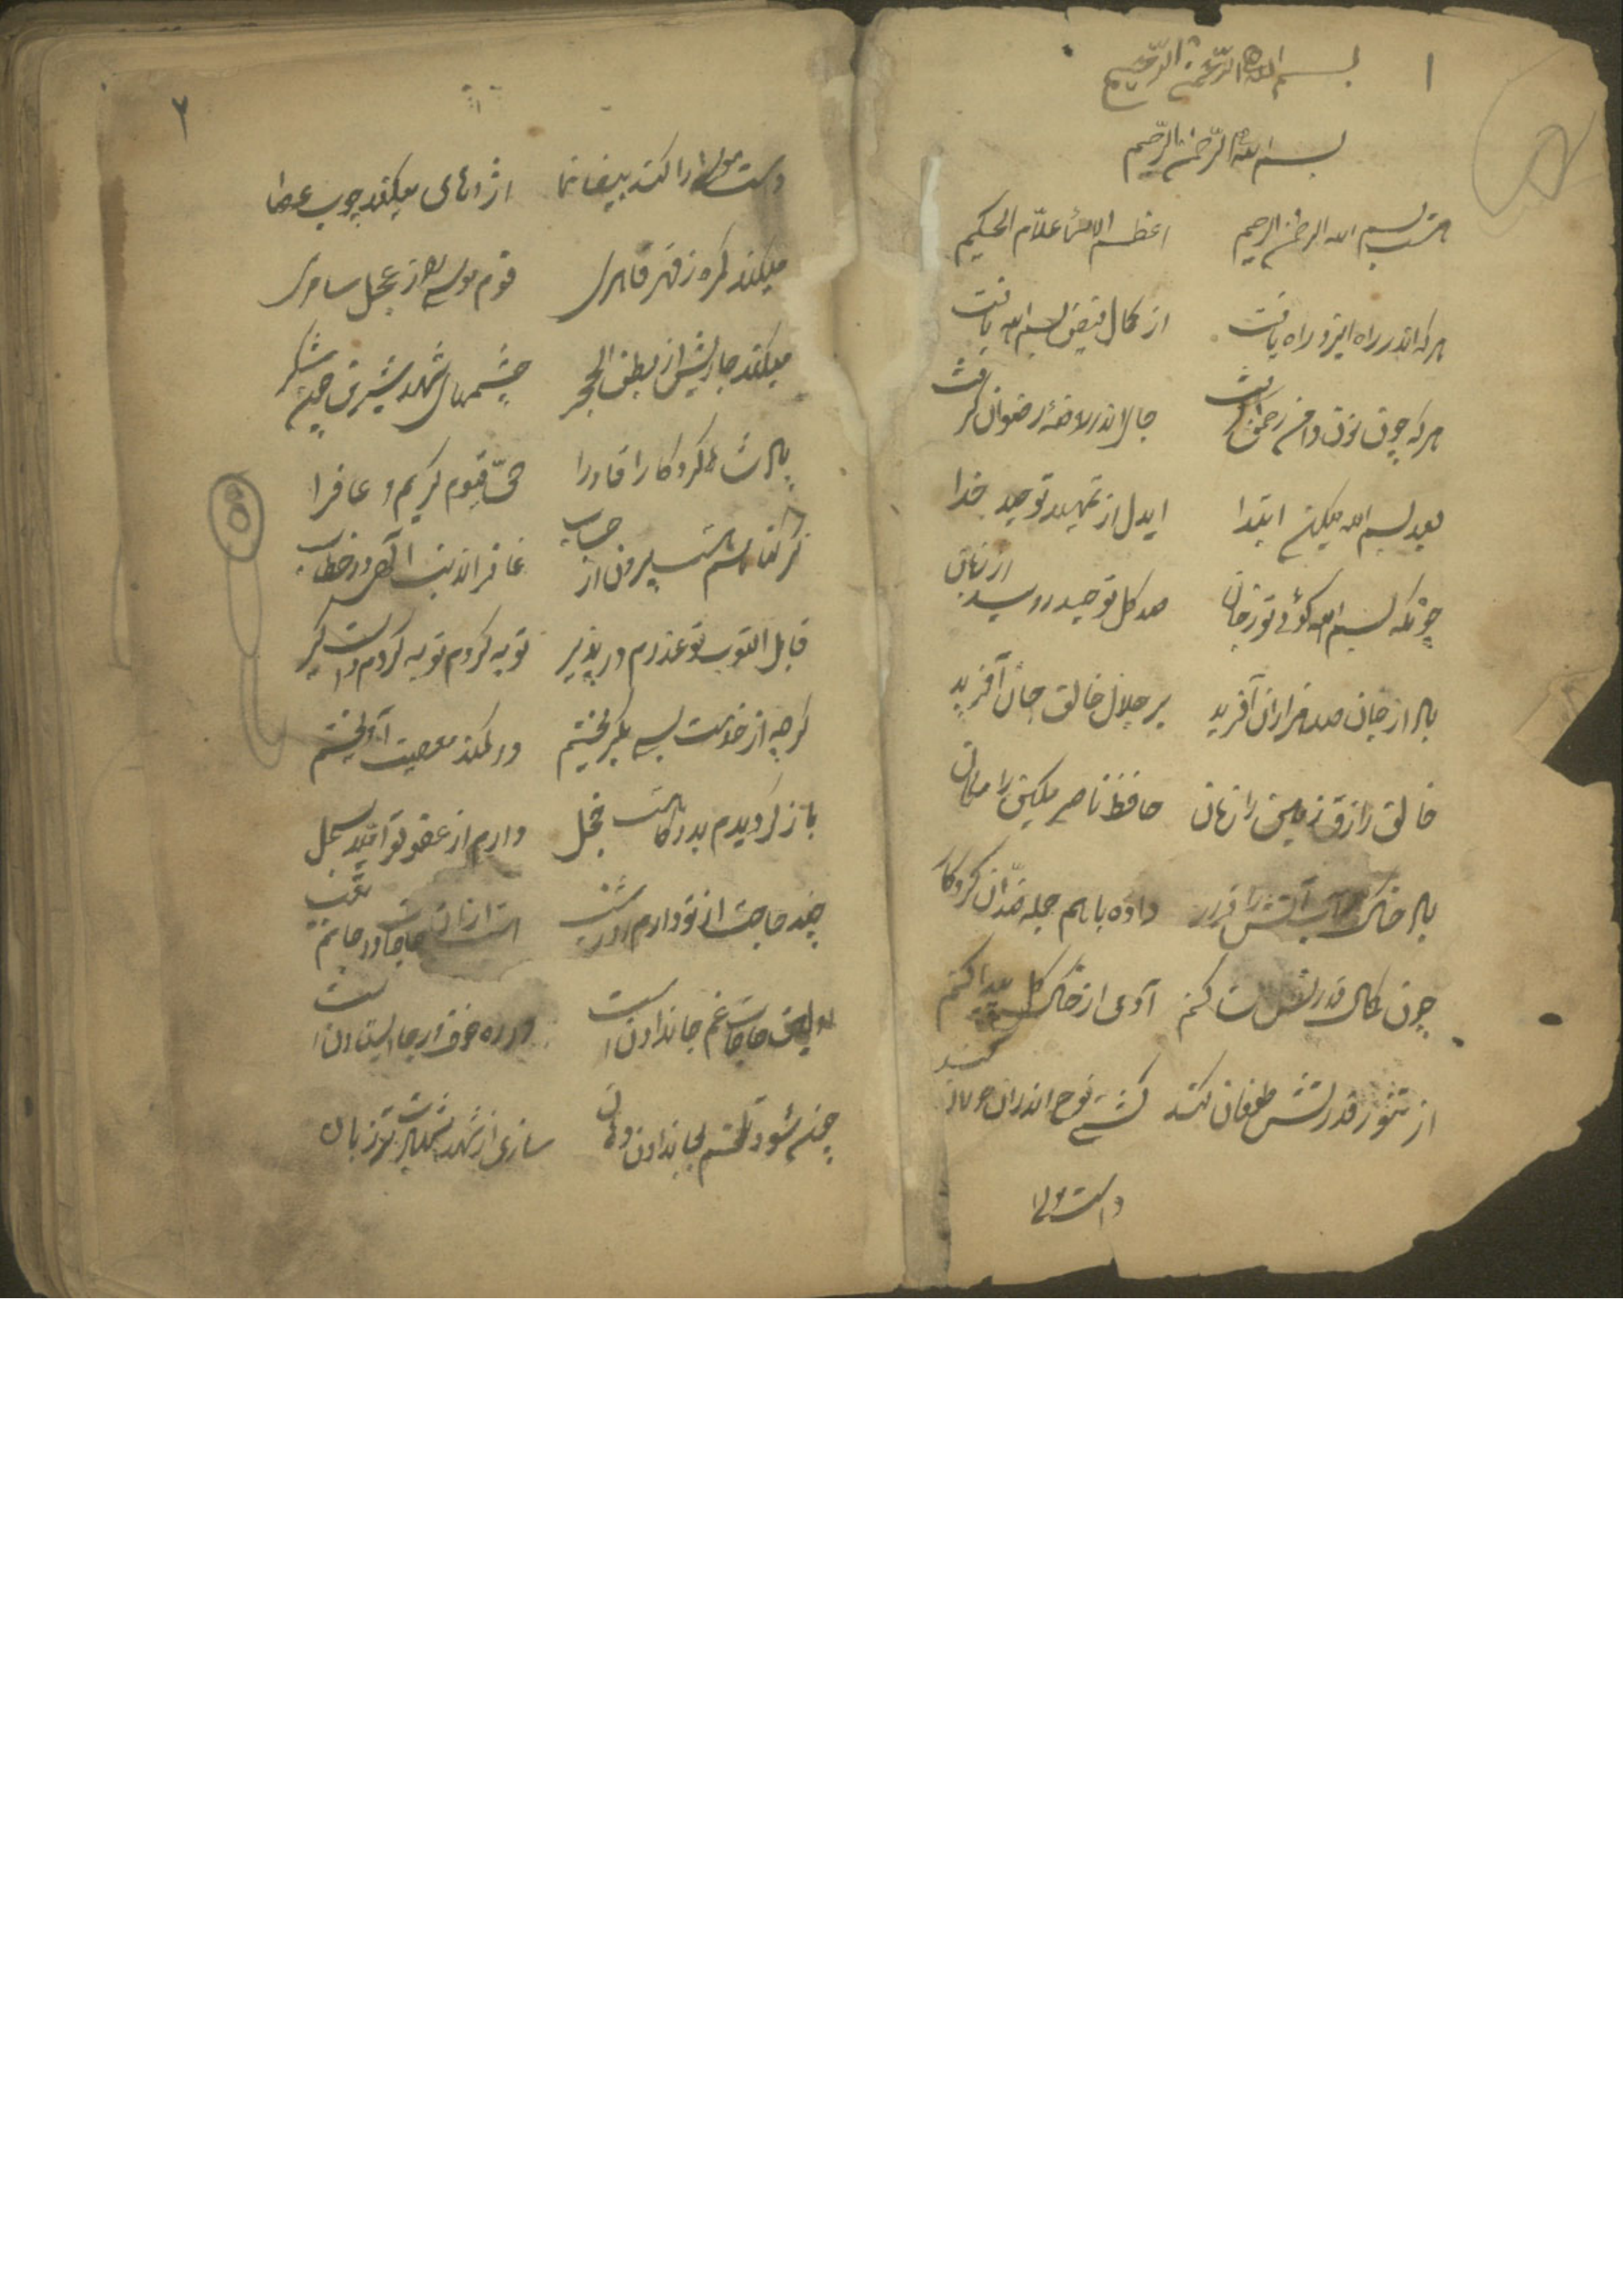 ۱
بسم الله الرحمن الرحیم
بسم الله الرحمن الرحیم
هست بسم الله الرحمن الرحیم اعظم الاسماء علّام الحکیم
هرکه اندر راه ایزد راه یافت از کمال فیض بسم الله یافت
هرکه چون نون دامن رحمن گرفت جا اندر روضهٔ رضوان گرفت
بعد بسم الله میکنم ابتدا ایدل از تمهید توحید خدا
چونکه بسم الله گوئی تو زجان صد کل توحید روید از زبان
باز جان صد هزاران آفرید بر جلال خالق جان آفرید
خالق رازق زمین را زمان حافظ ناصر مکین را مکان
باد خاک آب آتش را قرار داده باهم جمله ضدّان کردکار
چون کمال قدرتش کند آدمی از خاک کل پیدا کند
از تنور قدرتش طوفان کند کشتی نوح اندران کند
دست موسی
۲
دست موسی را کند بیضا نما اژدهای میکند چوب عصا
میکند کمره ز قهر قاهری قوم موسی را از عجل سامری
میکند جاریش از بطن الحجر چشمهای شهد شیرین چون شکر
پادشاها کردکارا قادرا حیّ قیوم کریم و غافرا
کر کناهم هست بیرون از حساب غافر الذنب آمدی در خطاب
قابل التوب تو عذرم در پذیر توبه کردم توبه کردم دست کیر
کرچه از خدمت بسی بکریختم در کمند معصیت آویختم
باز کردیدم بدرکاهت خجل دارم از عفو تو امّید سجل
چند حاجت از تو دارم حاجاتم
اولین حاجات غم جان دادن است در ره خوف و رجا استادن است
چشم جان دادن دهان سازی از شهد شهادت تر زبان